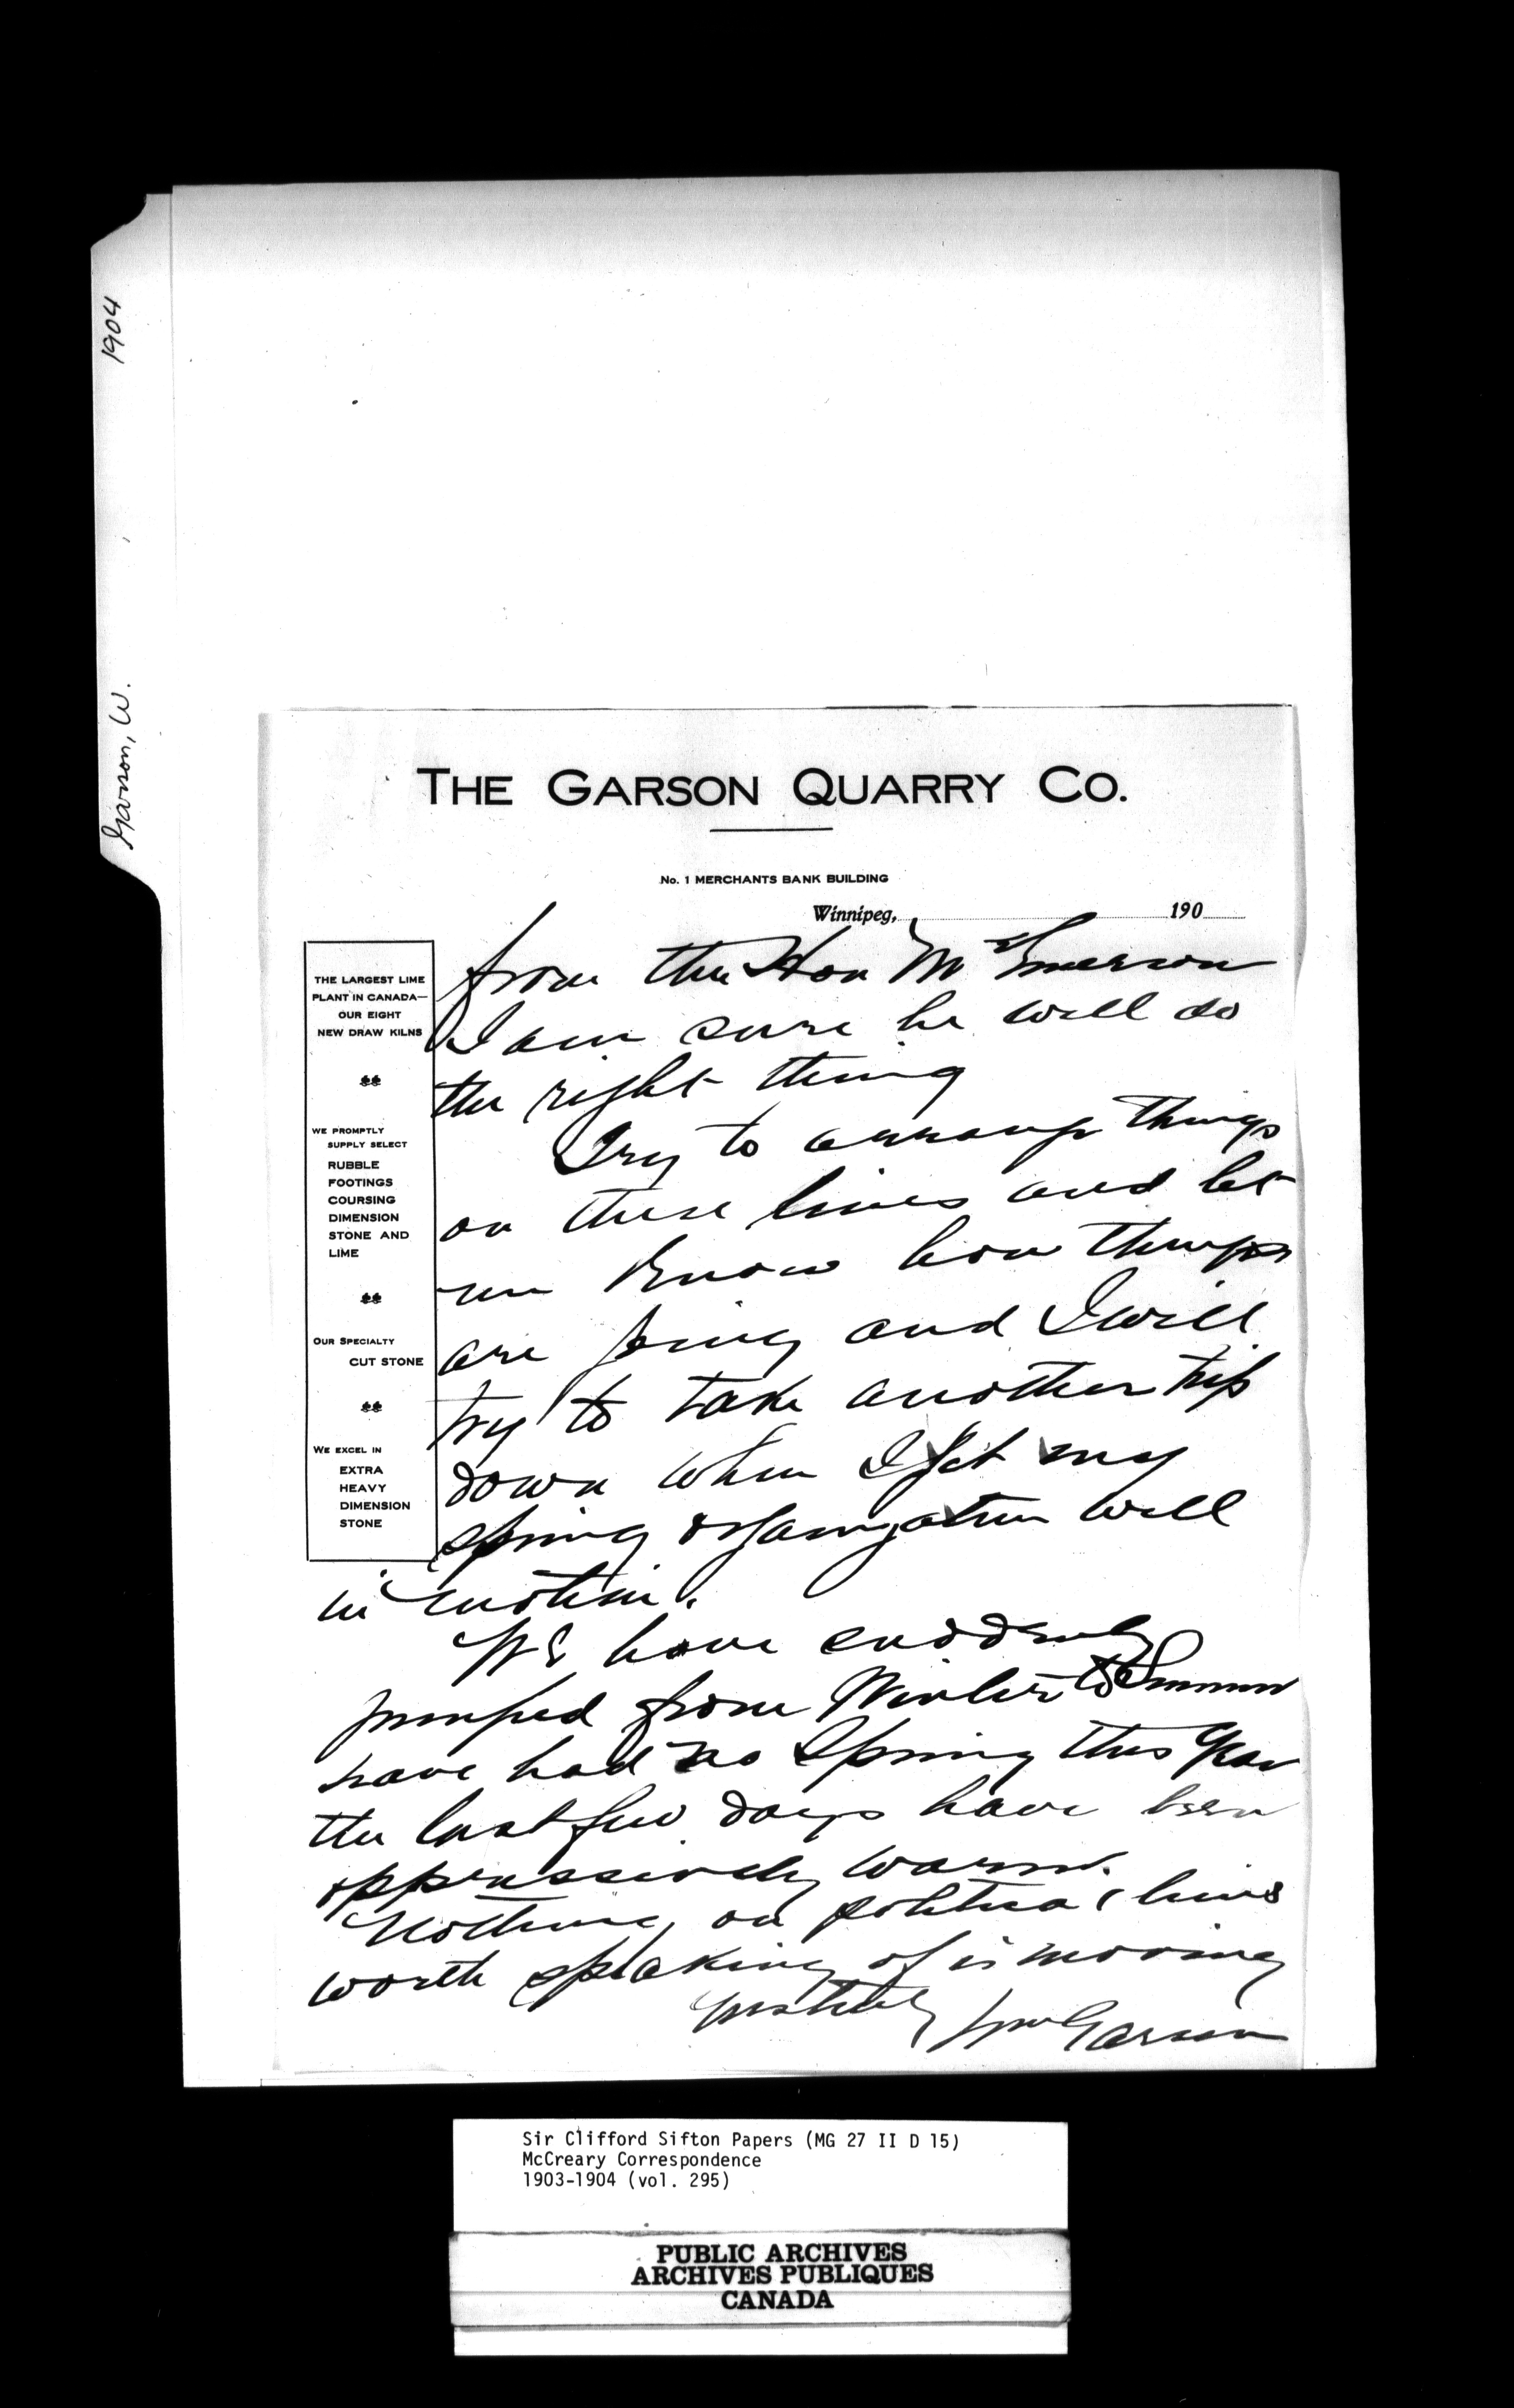 1904
Garson, W.
THE GARSON QUARRY CO.
No. 1 MERCHANTS BANK BUILDING
Winnipeg, 190
THE LARGEST LIME
PLANT IN CANADA—
OUR EIGHT
NEW DRAW KILNS
WE PROMPTLY
SUPPLY SELECT
RUBBLE
FOOTINGS
COURSING
DIMENSION
STONE AND
LIME
OUR SPECIALTY
CUT STONE
WE EXCEL IN
EXTRA
HEAVY
DIMENSION
STONE
from the Hon Mr Emerson
I am sure he will do
the right thing
Try to arrange things
on these lines and let
me know how things
are going and I will
try to take another trip
down when I get my
spring organization well
in motion.
We have suddenly
jumped from Winter to Summer
have had no Spring this year
the last few days have been
oppressively warm.
Nothing on political lines
worth speaking of is moving
Yours truly Wm Garson
Sir Clifford Sifton Papers (MG 27 II D 15)
McCreary Correspondence
1903-1904 (vol. 295)
PUBLIC ARCHIVES
ARCHIVES PUBLIQUES
CANADA